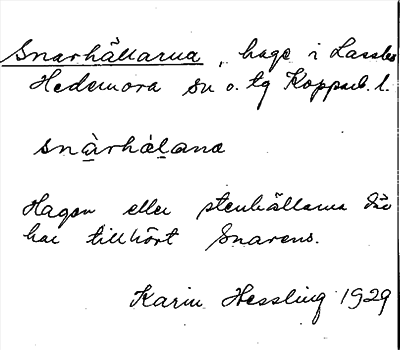 Snarhällarna, hage i Lassbo
Hedemora sn o. tg Kopparb. l.
snàrhälana
Hagen eller stenhällarna där
har tillhört Snarens.
Karin Hessling 1929